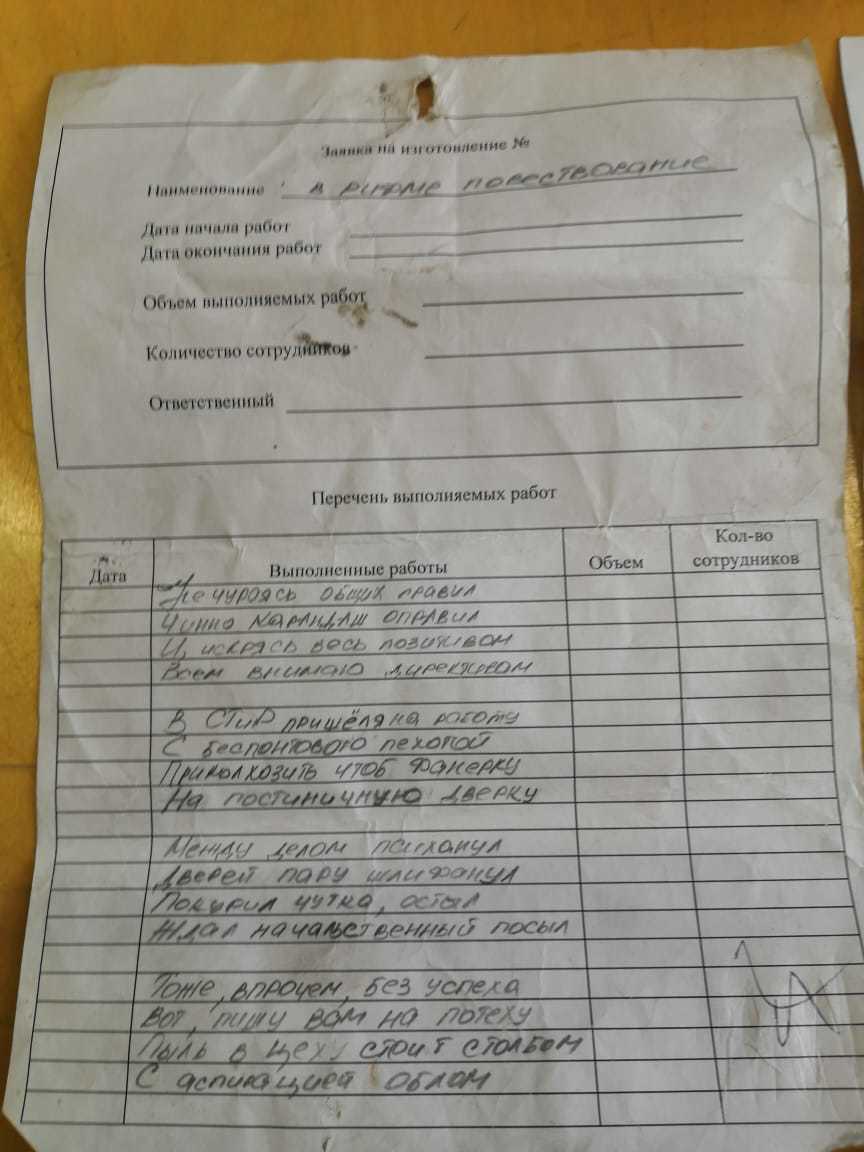 Заявка на изготовление №
Наименование в рифме повествование
Дата начала работ
Дата окончания работ
Объем выполняемых работ
Количество сотрудников
Ответственный
Перечень выполняемых работ
Дата Выполненные работы Объем Кол-во сотрудников
Не чураясь общих правил
Чинно карандаш оправил
И, искрясь весь позитивом
Всем внимаю директивам
В СТиР пришёл я на работу
С беспонтового пехотой
Приколхозить чтоб фанерку
На постиничную дверку
Между делом психанул
Дверей пару шлифанул
Покурил чутка, остыл
Ждал начальственный посыл
Тоже, впрочем, без успеха
Вот, пишу вам на потеху
Пыль в цеху стоит столбом
С аспирацией облом